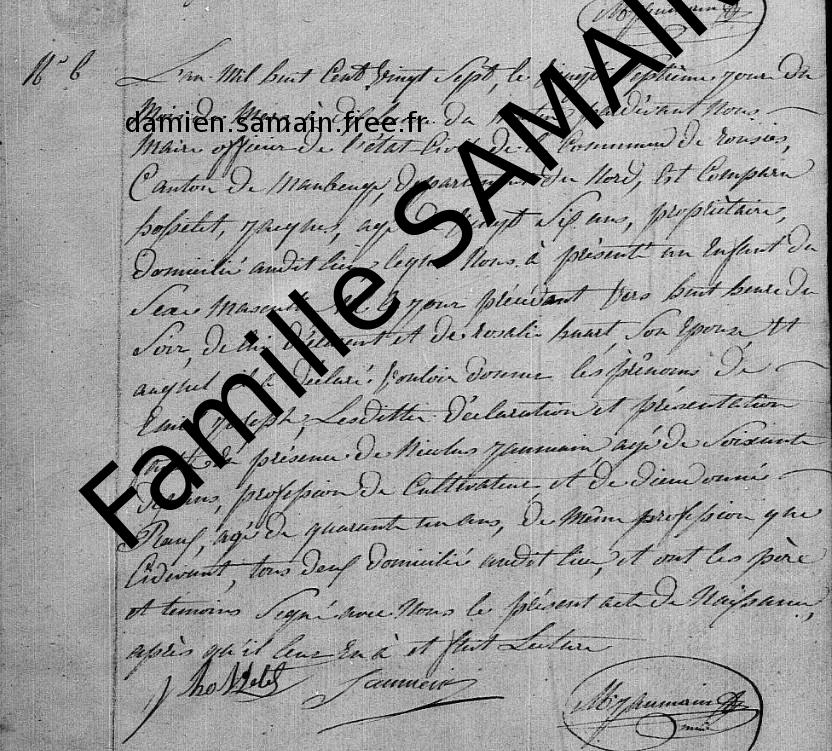 N° 6
L'an Mil huit Cent Vingt Sept, le vingt Septième jour du
Mois de Mars à dix heure du Matin pardevant Nous
damien.samain.free.fr
Maire officier de l'état Civil de la Commune de rousies,
Canton de Maubeuge, Département du Nord, Est Comparu
hosselet, jacques, agé de vingt Six ans, propriétaire,
Domicilié audit lieu lequel Nous à présenté un Enfant du
Sexe Masculin né le jour précédant vers huit heure du
Soir, de lui Déclarant et de rosalie huart, Son Epouse et
auquel il a déclaré Vouloir donner les prénoms de
joseph, Lesdittes déclaration et présentation
présence de Nicolas jaumain agé de Soixante
ans, profession de Cultivateur et de dieudonné
agé de quarante un ans, de Même profession que
Cidevant, tous deux domicilié audit lieu, et ont les père
et temoins Signé avec Nous le présent acte de Naissance,
après qu'il leur En à été fait Lecture
Famille SAMAI
j hosselet
Jaumain
M jaumain